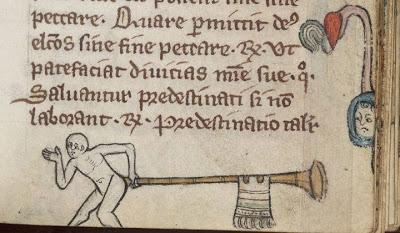 peccare. Quare permittit deꝰ
elcōs sine fine peccare. R̷. Vt
patefaciat divicias mīe sue. qͦ.
Salvantur predestinati si nō
laborant. R̷. Predestinatio tali